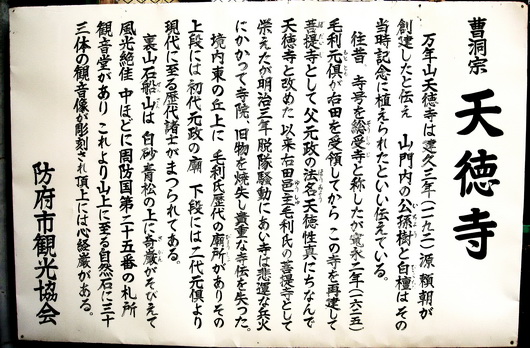 曹洞宗
天徳寺
万年山天徳寺は建久三年(一一九二)源頼朝が
創建したと伝え 山門内の公孫樹と白檀はその
当時記念に植えられたといい伝えている。
往昔 寺号を総受寺と称したが寛永二年(一六二五)
毛利元倶が右田を受領してから この寺を再建して
菩提寺として父元政の法名天徳性真にちなんで
天徳寺と改めた 以来右田邑主毛利氏の菩提寺として
栄えたが明治三年脱隊騒動にあい寺は悲運な兵火
にかかって寺院、旧物を焼失し貴重な寺伝を失った。
境内東の丘上に 毛利氏歴代の廟所がありその
上段には初代元政の廟 下段には二代元倶より
現代に至る歴代諸士がまつられてある。
裏山石船山は 白砂青松の上に奇巌がそびえて
風光絶佳 中ほどに周防国第二十五番の札所
観音堂があり これより山上に至る自然石に三十
三体の観音像が彫刻され頂上には心経巌がある。
防府市観光協会